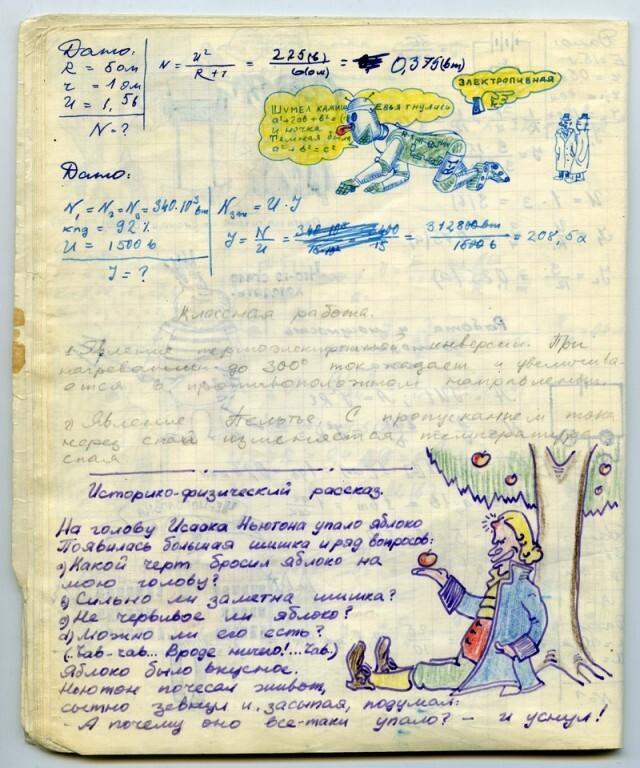 Дато:
R = 5 ом
r = 1 ом
U = 1,5в
N = ?
N = U² / R + r = 2,25(в) / 6(ом) = 0,375(вт)
ЭЛЕКТРОПИВНАЯ
ШУМЕЛ КАМЫШ
ЕВЬЯ ГНУЛИСЬ
а²+2ab+b²=
и ночка
Темная была
a²+b²=c²
Дато:
N₁ = N₂ = N₃ = 340·10³ вт
кпд = 92%
U = 1500 в
J = ?
N эл = U · J
J = N / U = = 312800 вт / 1500 в = 208,5 а
Классная работа.
1) Явление термоэлектрической инверсии. При
нагревании до 300° ток падает и увеличива-
ется в противоположном направлении.
2) Явление Пельтье. С пропусканием тока
через спай изменяется температура
спая
Историко-физический рассказ.
На голову Исаака Ньютона упало яблоко
Появилась большая шишка и ряд вопросов:
а) Какой черт бросил яблоко на
мою голову?
б) Сильно ли заметна шишка?
в) Не червивое ли яблоко?
г) Можно ли его есть?
(..Чав-чав... Вроде ничего!...Чав.)
Яблоко было вкусное.
Ньютон почесал живот,
сытно зевнул и, засыпая, подумал:
- А почему оно все-таки упало? - и уснул!